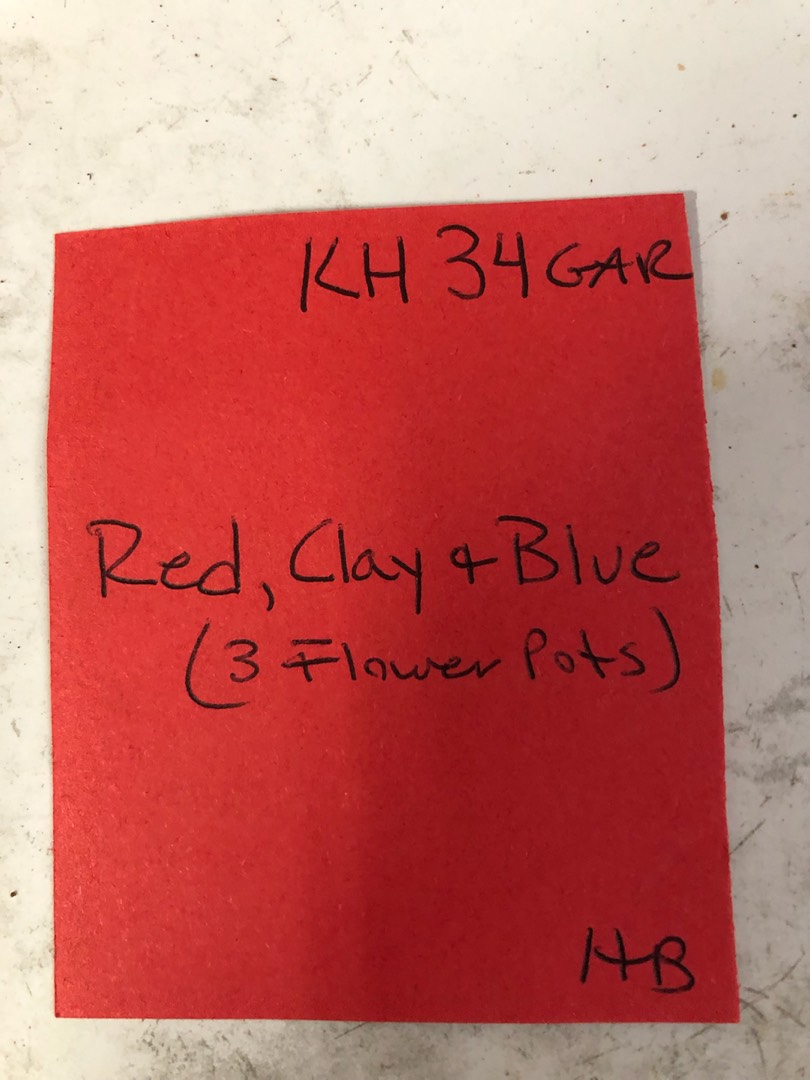 KH 34 GAR
Red, Clay & Blue
(3 Flower Pots)
HB